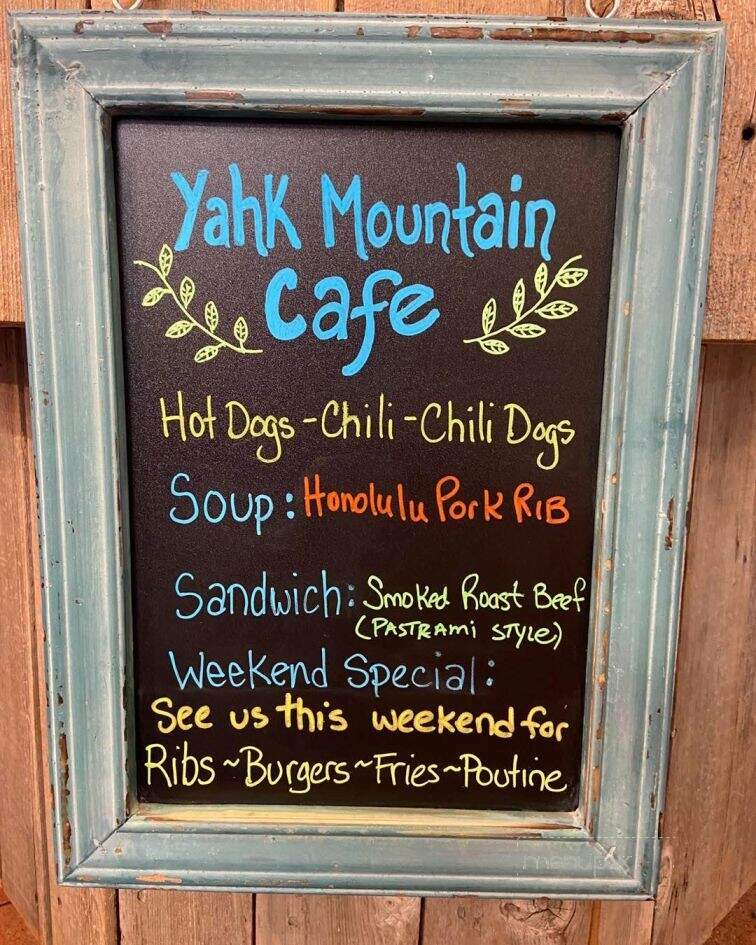 Yahk Mountain
Cafe
Hot Dogs - Chili - Chili Dogs
Soup: Honolulu Pork Rib
Sandwich: Smoked Roast Beef
(PASTRAMi STYLE)
Weekend Special:
See us this weekend for
Ribs ~ Burgers ~ Fries ~ Poutine